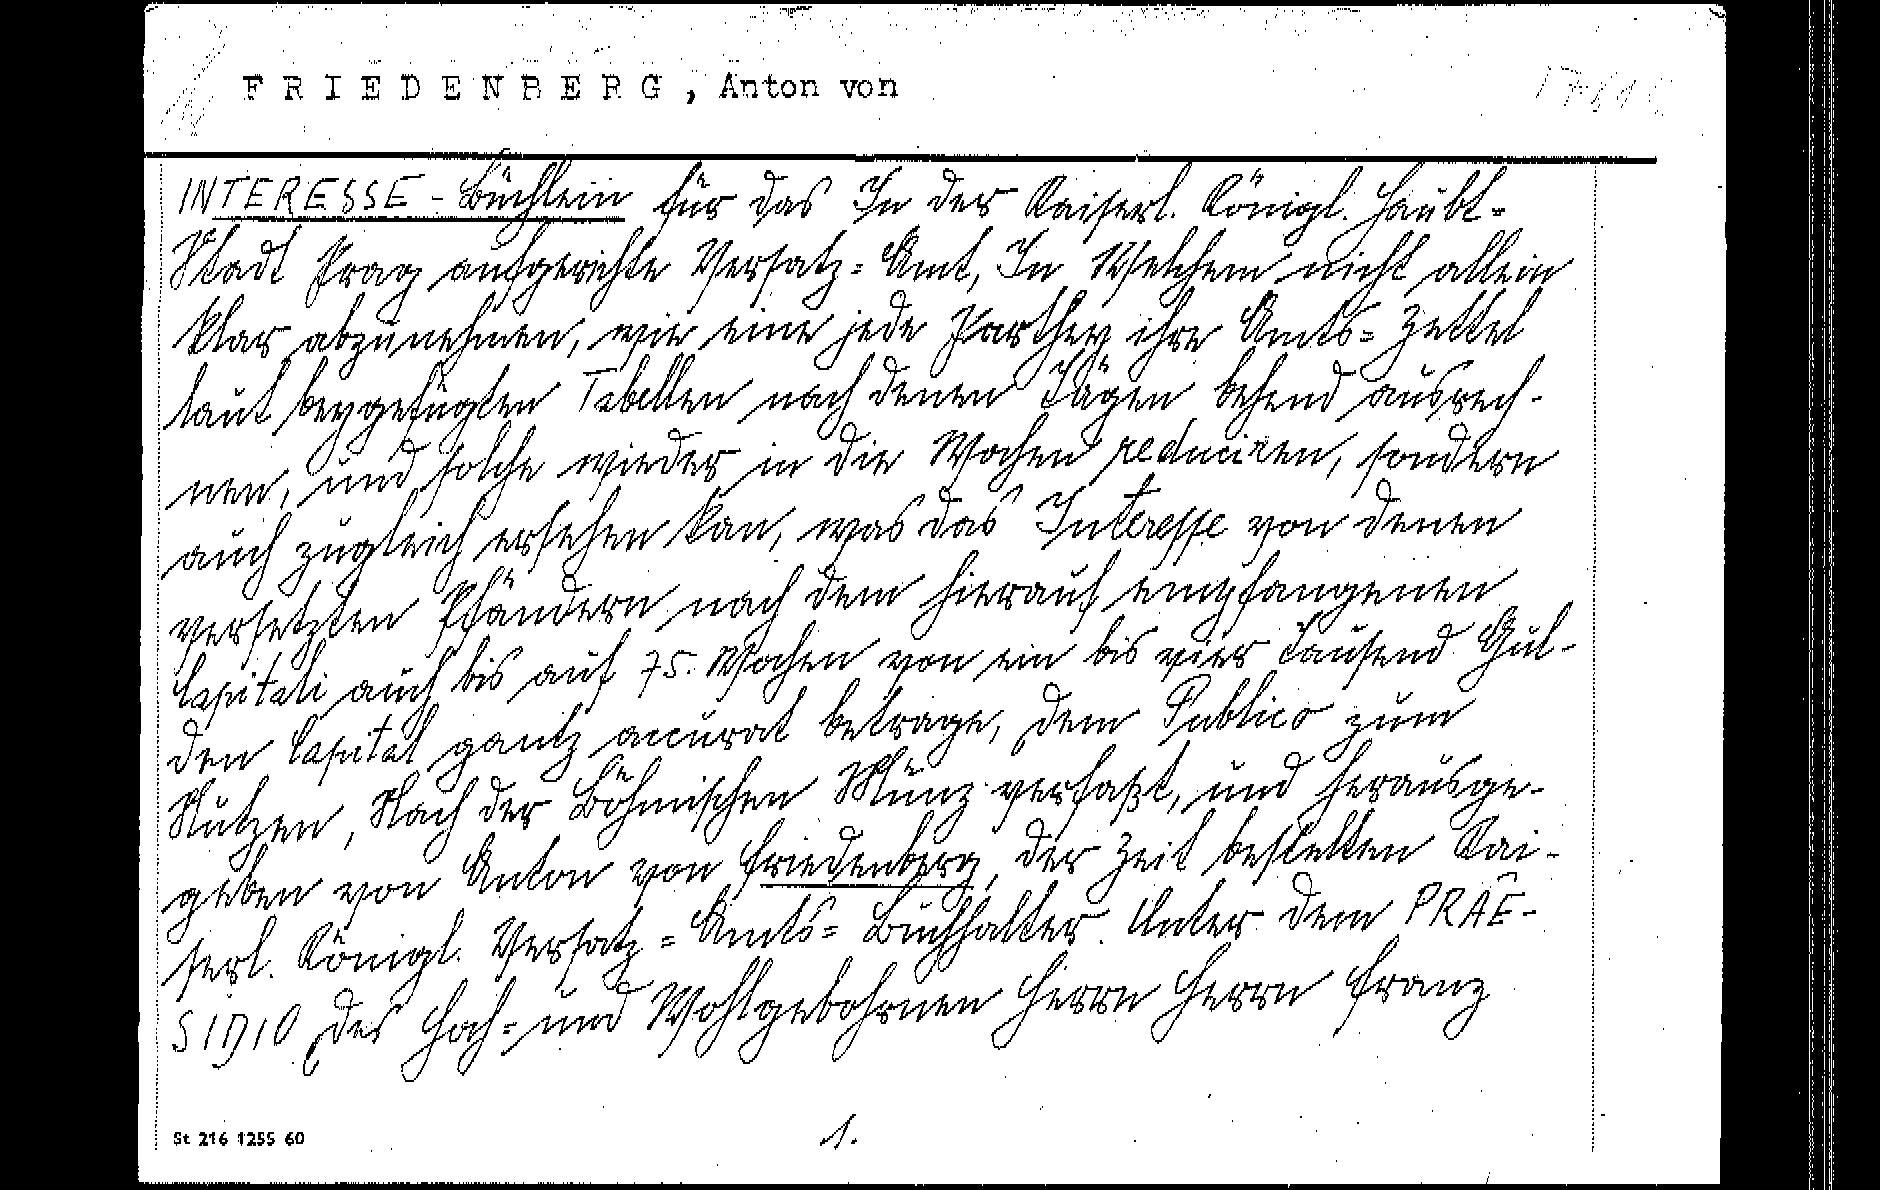 FRIEDENBERG, Anton von
INTERESSE-Büchlein für das In der Kaiserl. Königl. Haubt=
Stadt Prag aufgerichte Versatz=Amt, In Welchem nicht allein
klar abzunehmen, wie eine jede Parthey ihre Amts=Zettel
laut beygefügten Tabellen nach denen Tägen behend ausrech-
nen, und solche wieder in die Wochen reduciren, sondern
auch zugleich ersehen kan, was das Interesse von denen
versetzten Pfändern nach dem hierauf empfangenen
Capitali auch bis auf 75. Wochen von ein bis vier Tausend Gul-
den Capital gantz accurat betrage, dem Publico zum
Nutzen, Nach der Böhmischen Münz verfaßt, und herausge-
geben von Anton von Friedenberg, der Zeit bestelten Kai-
serl. Königl. Versatz=Amts=Buchhalter. Unter dem PRAE-
SIDIO des Hoch= und Wohlgebohrnen Herrn Herrn Franz
St 216 1255 60
1.